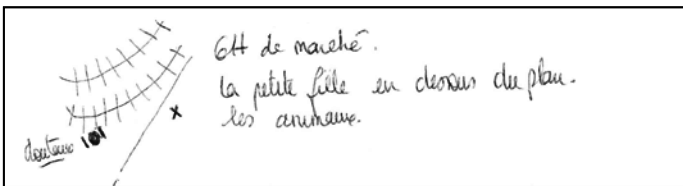 6H de marché.
la petite fille en dessous du plan.
les animaux.